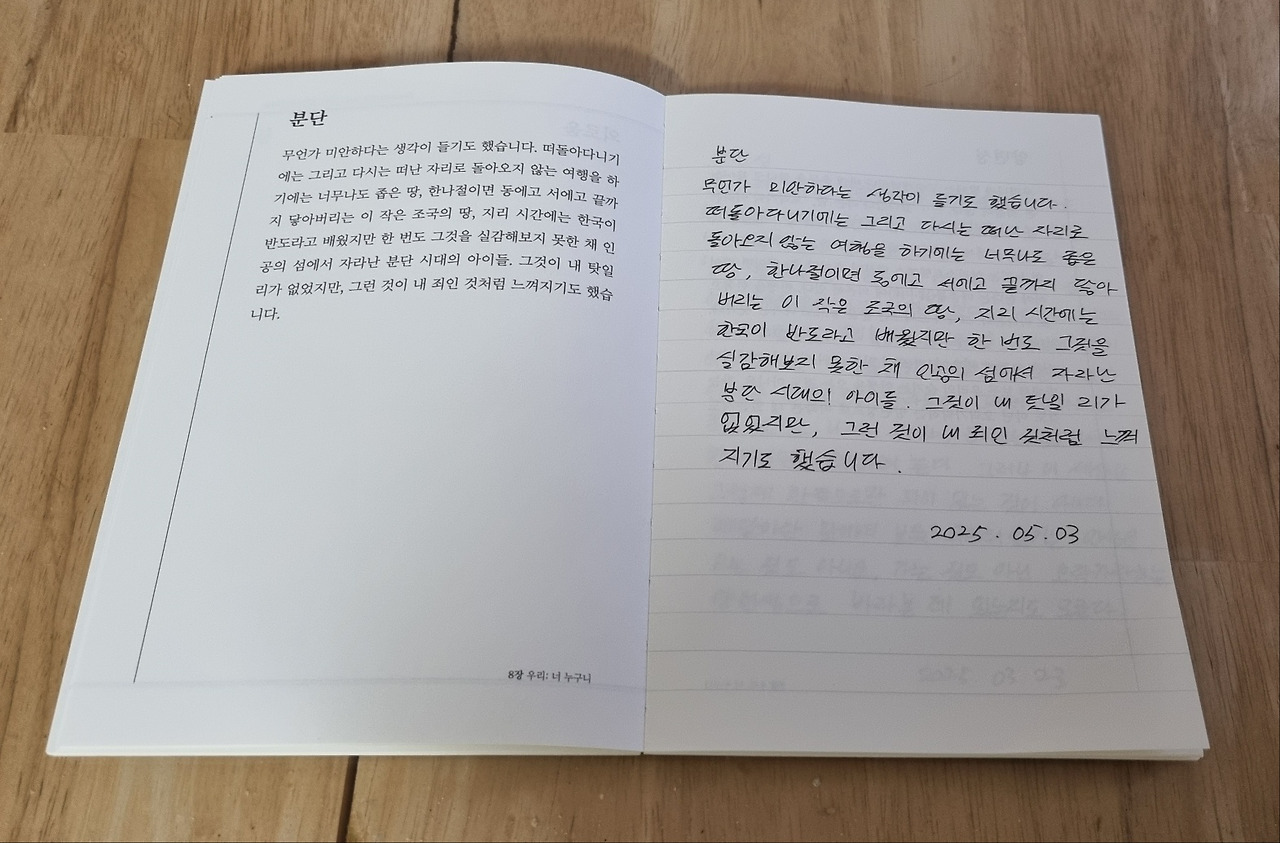 분단
무언가 미안하다는 생각이 들기도 했습니다. 떠돌아다니기
에는 그리고 다시는 떠난 자리로 돌아오지 않는 여행을 하
기에는 너무나도 좁은 땅, 한나절이면 동에고 서에고 끝까
지 닿아버리는 이 작은 조국의 땅, 지리 시간에는 한국이
반도라고 배웠지만 한 번도 그것을 실감해보지 못한 채 인
공의 섬에서 자라난 분단 시대의 아이들. 그것이 내 탓일
리가 없었지만, 그런 것이 내 죄인 것처럼 느껴지기도 했습
니다.
8장 우리: 너 누구니
분단
무언가 미안하다는 생각이 들기도 했습니다.
떠돌아다니기에는 그리고 다시는 떠난 자리로
돌아오지 않는 여행을 하기에는 너무나도 좁은
땅, 한나절이면 동에고 서에고 끝까지 닿아
버리는 이 작은 조국의 땅, 지리 시간에는
한국이 반도라고 배웠지만 한 번도 그것을
실감해보지 못한 채 인공의 섬에서 자라난
분단 시대의 아이들. 그것이 내 탓일 리가
없었지만, 그런 것이 내 죄인 것처럼 느껴
지기도 했습니다.
2025. 05. 03